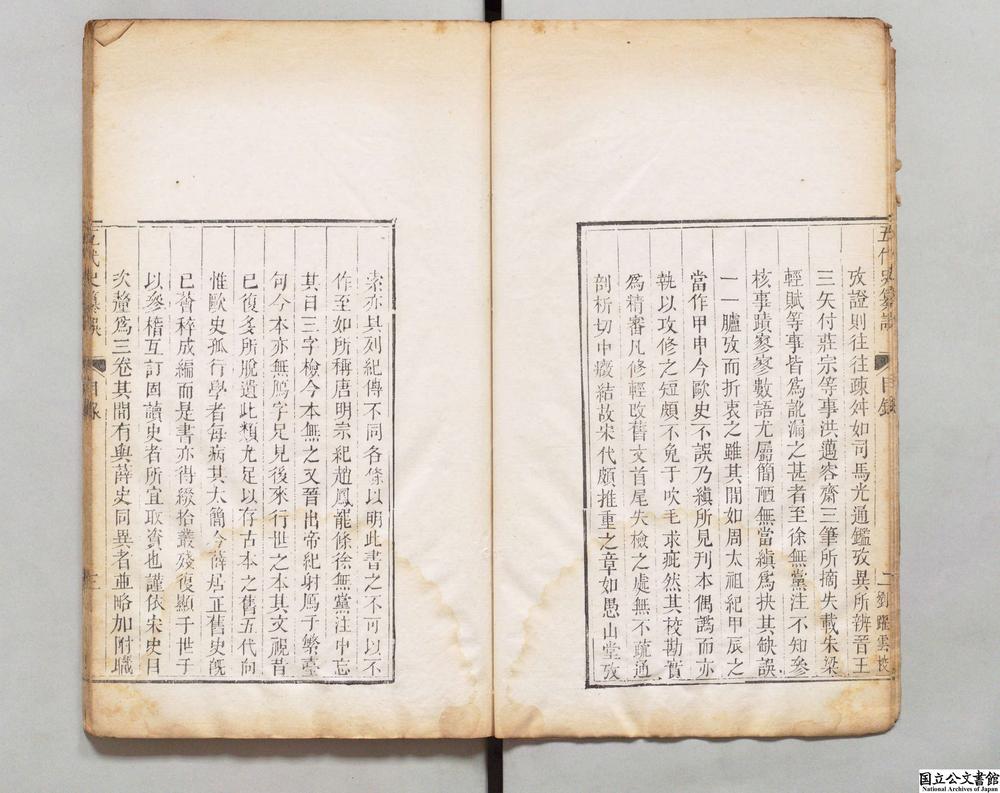 五代史纂誤
目錄
二
劉躍雲校
攷證則往往疎舛如司馬光通鑑攷異所辨晉王
三矢付莊宗等事洪邁容齋三筆所摘失載朱梁
輕賦等事皆為訛漏之甚者至徐無黨注不知參
核事蹟寥寥數語尤屬簡陋無當縝為抉其缺誤
一一臚攷而折衷之雖其間如周太祖紀甲辰之
當作甲申今歐史不誤乃縝所見刊本偶譌而亦
執以攻修之短頗不免于吹毛求疵然其校勘實
爲精審凡修輕改舊文首尾失檢之處無不疏通
剖析切中癥結故宋代頗推重之章如愚山堂攷
索亦具列紀傳不同各條以明此書之不可以不
作至如所稱唐明宗紀趙鳳罷條徐無黨注中忘
其日三字檢今本無之又晉出帝紀射鴈于繁臺
句今本亦無鴈字足見後來行世之本其文視昔
已復多所脫遺此類尤足以存古本之舊五代向
惟歐史孤行學者每病其太簡今薛居正舊史旣
已薈稡成編而是書亦得綴拾叢殘復顯于世于
以參稽互訂固讀史者所宜取資也謹依宋史目
次釐爲三卷其間有與薛史同異者並略加附職
五代史纂誤
目錄
三
国立公文書館
National Archives of Japan